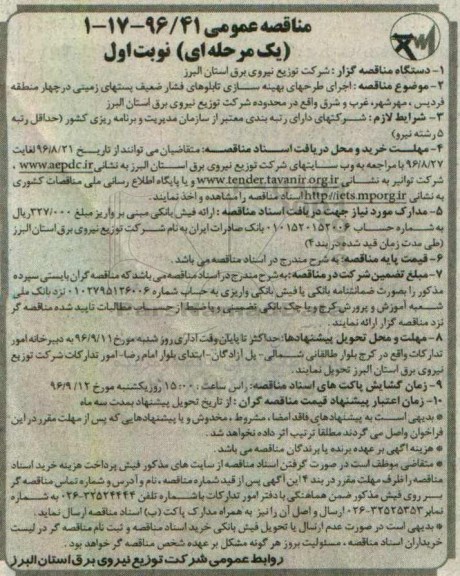 مناقصه عمومی ۹۶/۴۱-۱۷-۱
(یک مرحله ای) نوبت اول
۱- دستگاه مناقصه گزار: شرکت توزیع نیروی برق استان البرز
۲- موضوع مناقصه: اجرای طرحهای بهینه سازی تابلوهای فشار ضعیف پستهای زمینی در چهار منطقه
فردیس، مهرشهر، غرب و شرق واقع در محدوده شرکت توزیع نیروی برق استان البرز
۳- شرایط لازم: شرکتهای دارای رتبه بندی معتبر از سازمان مدیریت و برنامه ریزی کشور (حداقل رتبه
۵ رشته نیرو)
۴- مهلت خرید و محل دریافت اسناد مناقصه: متقاضیان می توانند از تاریخ ۹۶/۸/۲۱ لغایت
۹۶/۸/۲۷ با مراجعه به وب سایتهای شرکت توزیع نیروی برق استان البرز به نشانی www.aepdc.ir ،
شرکت توانیر به نشانی www.tender.tavanir.org.ir و یا پایگاه اطلاع رسانی ملی مناقصات کشوری
به نشانی http://iets.mporg.ir اسناد مناقصه را مشاهده و اخذ نمایند.
۵- مدارک مورد نیاز جهت دریافت اسناد مناقصه: ارائه فیش بانکی مبنی بر واریز مبلغ ۳۲۷/۰۰۰ ریال
به شماره حساب ۰۱۰۱۵۲۰۱۵۲۰۰۶ بانک صادرات ایران به نام شرکت توزیع نیروی برق استان البرز
(طی مدت زمان قید شده در بند ۴)
۶- قیمت پایه مناقصه: به شرح مندرج در اسناد مناقصه می باشد.
۷- مبلغ تضمین شرکت در مناقصه: به شرح مندرج در اسناد مناقصه می باشد که مناقصه گران بایستی سپرده
مذکور را بصورت ضمانتنامه بانکی یا فیش بانکی واریزی به حساب شماره ۰۱۰۲۷۹۵۱۲۶۰۰۶ نزد بانک ملی
شعبه آموزش و پرورش کرج و یا چک بانکی تضمینی و یا ضبط از حساب مطالبات تایید شده مناقصه گر
نزد مناقصه گزار ارائه نمایند.
۸- مهلت و محل تحویل پیشنهادها: حداکثر تا پایان وقت اداری روز شنبه مورخ ۹۶/۹/۱۱ به دبیرخانه امور
تدارکات واقع در کرج بلوار طالقانی شمالی- پل آزادگان- ابتدای بلوار امام رضا- امور تدارکات شرکت توزیع
نیروی برق استان البرز تحویل نمایند.
۹- زمان گشایش پاکت های اسناد مناقصه: راس ساعت ۱۵:۰۰ روز یکشنبه مورخ ۹۶/۹/۱۲
۱۰- زمان اعتبار پیشنهاد قیمت مناقصه گران: از تاریخ تحویل پیشنهاد بمدت سه ماه
* بدیهی است به پیشنهادهای فاقد امضا، مشروط، مخدوش و یا پیشنهادهایی که پس از مهلت مقرر در این
فراخوان واصل می گردند مطلقا ترتیب اثر داده نخواهد شد.
* هزینه آگهی بر عهده برنده یا برندگان مناقصه می باشد.
* متقاضی موظف است در صورت گرفتن اسناد مناقصه از سایت های مذکور فیش پرداخت هزینه خرید اسناد
مناقصه را ظرف مهلت مقرر در بند ۴ این آگهی پس از قید شماره مناقصه، نام و آدرس و شماره تماس مناقصه گر
بر روی فیش مذکور ضمن هماهنگی با دفتر امور تدارکات با شماره تلفن ۳۲۵۲۴۴۴۴-۰۲۶ به شماره
نمابر ۳۲۵۲۵۳۵۳-۰۲۶ ارسال و اصل آن را نیز به همراه مدارک پاکت (ب) اسناد مناقصه ارسال نماید.
* بدیهی است در صورت عدم ارسال یا تحویل فیش بانکی خرید اسناد مناقصه و ثبت نام مناقصه گر در لیست
خریداران اسناد مناقصه، مسئولیت بروز هر گونه مشکل بر عهده شخص مناقصه گر خواهد بود.
روابط عمومی شرکت توزیع نیروی برق استان البرز